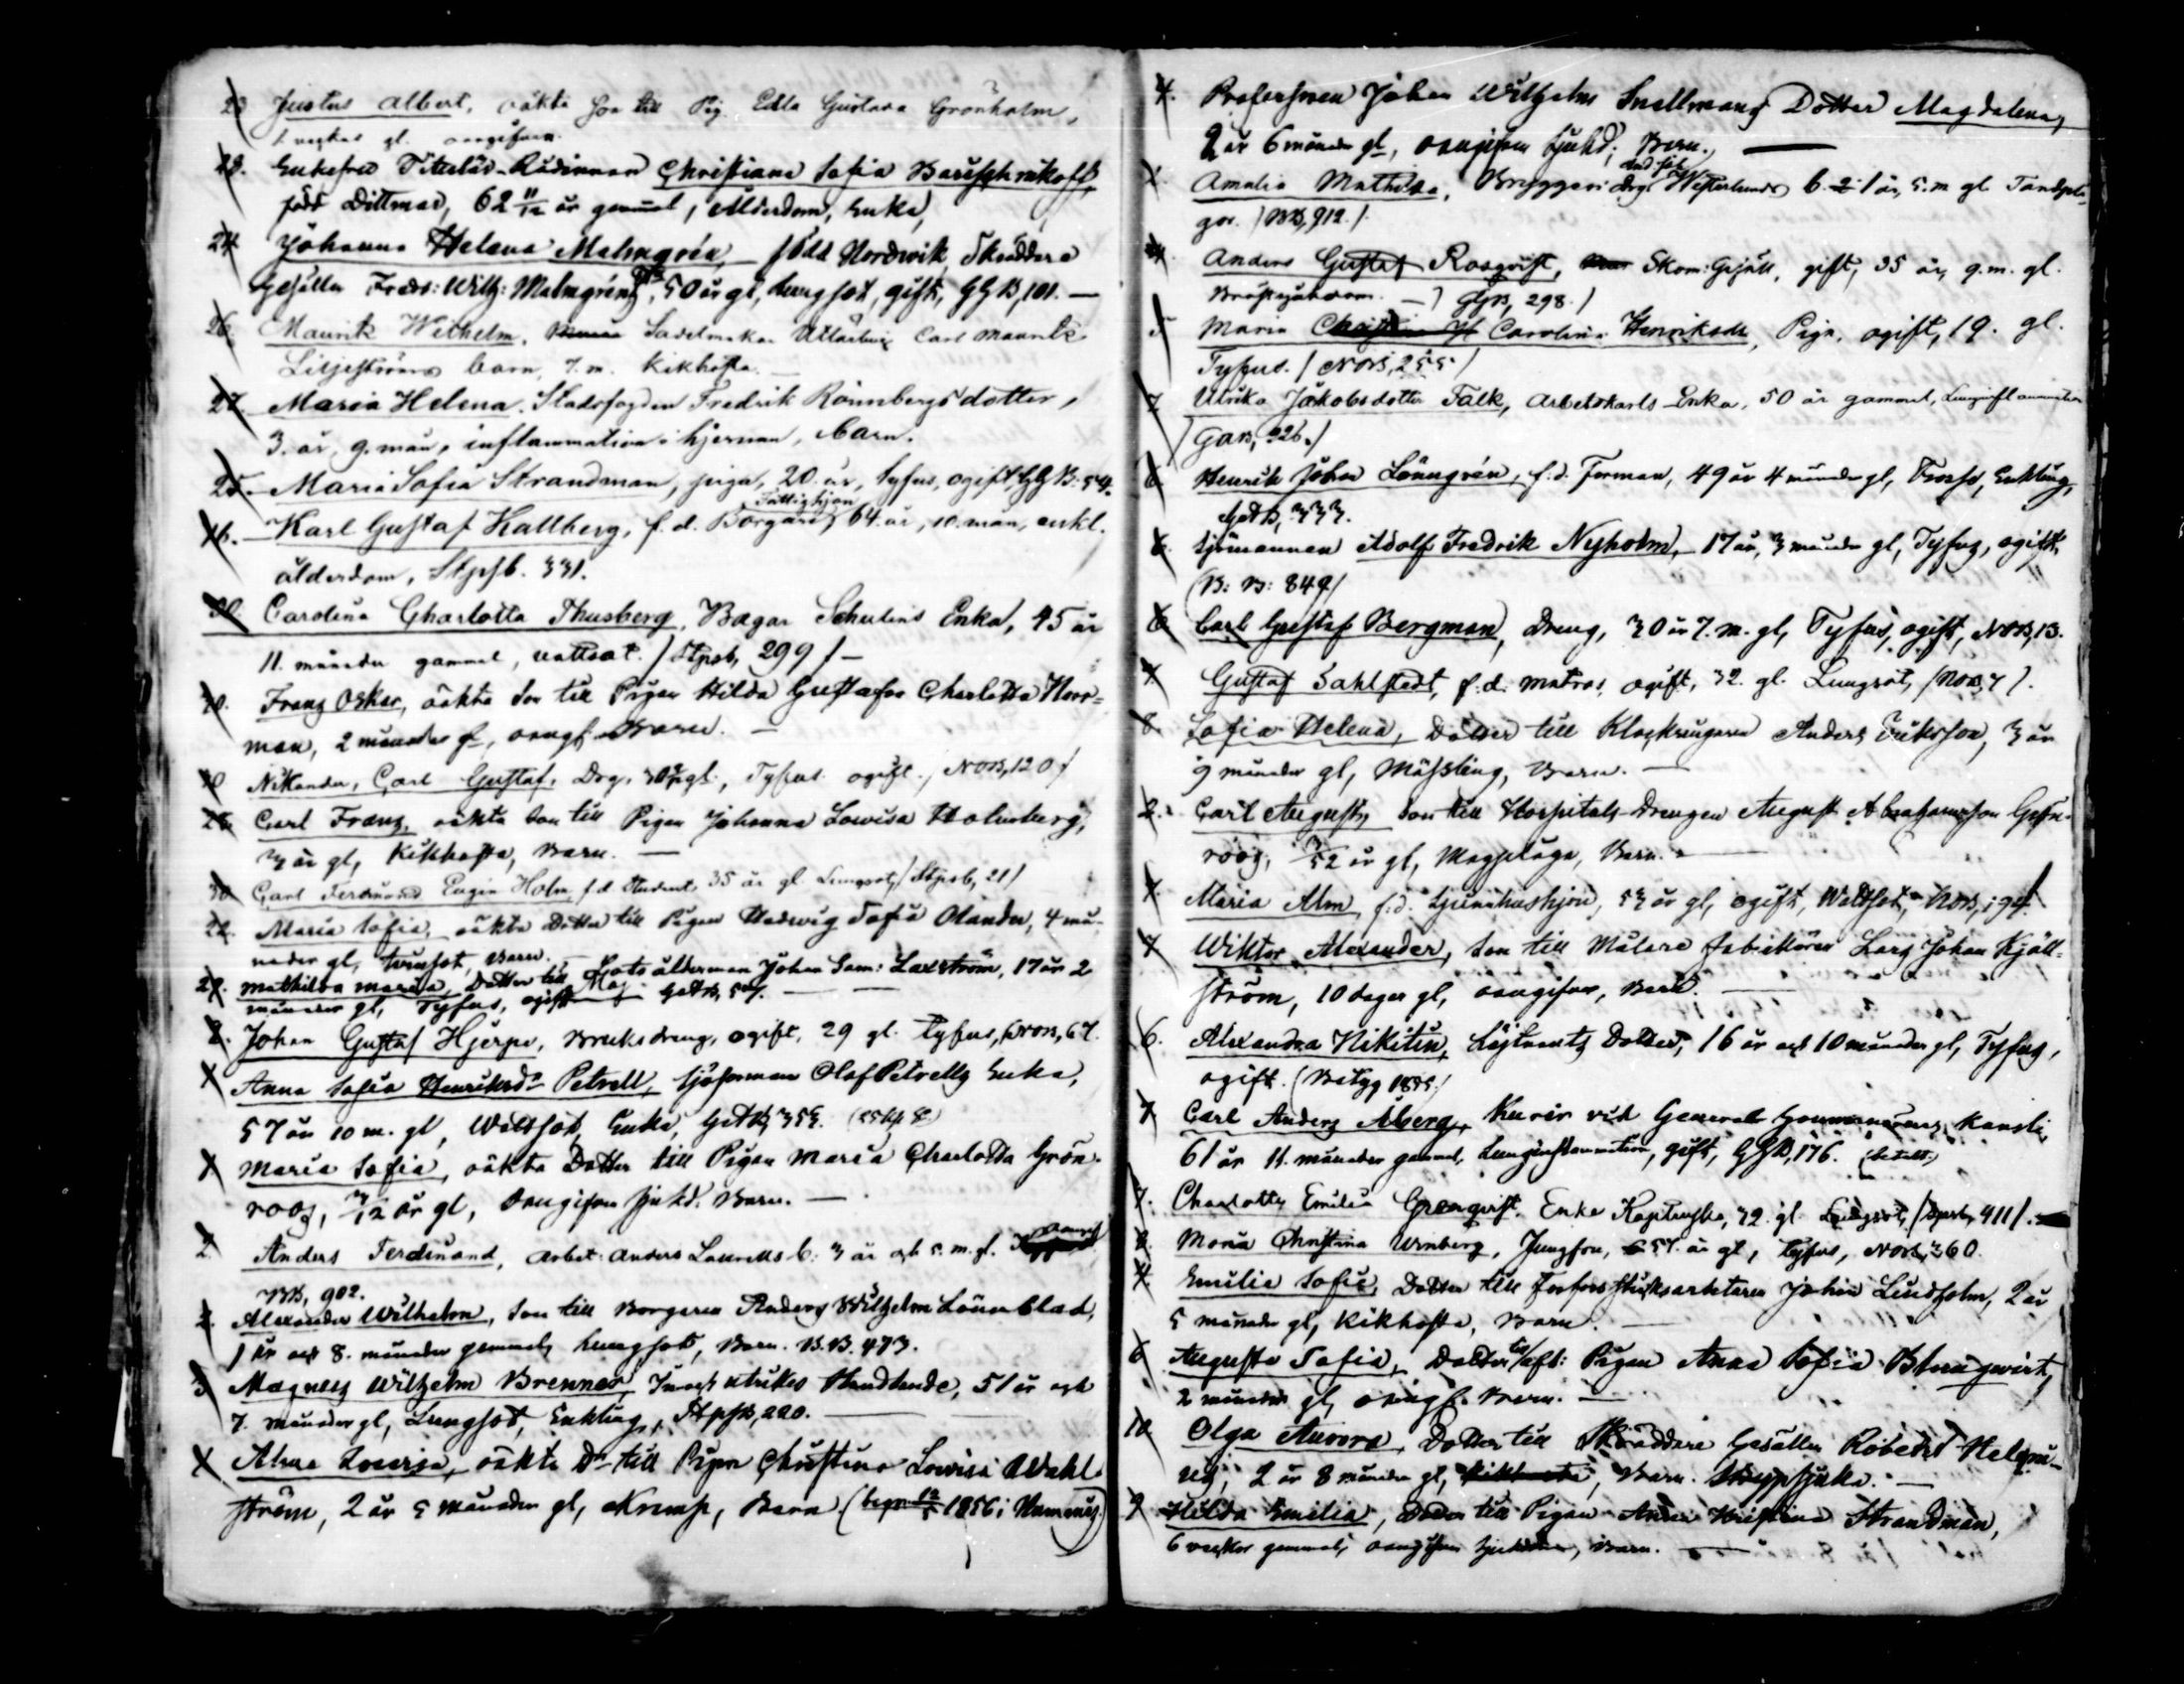 23 Justus Albert, oäkta son till Pig. Edla Gustava Grönholm,
2 veckor gl. oangifven.
28. Enkefru Titulär-Rådinnan Christiana Sofia
född Dittmar, 62 11/12 år gammal, Ålderdom, Enka,
24 Johanna Helena Malmgrén, född Nordwik, Skräddare
Gesällen Fredr: Wilh: Malmgréns, 50 år gl, Lungsot, gift, GGB, 101. —
26. Maurik Wilhelm, Sadelmakar Carl Mauritz
Liljeströms barn, 7. m. Kikhosta. —
27. Maria Helena, Stadsfogden Fredrik Rönnbergs dotter,
3. år, 9. mån, inflammation i hjernan, barn.
25. Maria Sofia Strandman, piga, 20. år, tyfus, ogift, GGB. 54.
Fattighjon
16. Karl Gustaf Hallberg, f. d. Borgare, 64. år, 10. mån, enkl.
ålderdom, Stpsb. 331.
30. Carolina Charlotta Thusberg, Bagar Schulins Enka, 45 år
11. månader gammal, vattsot. / Stpsb, 299 / —
30. Franz Oskar, oäkta Son till Pigan Hilda Gustafva Charlotta Norr=
man, 2 månader gl, oangf. Barn. —
30 Nikander, Carl Gustaf, Drg, gl., Tyfus ogift. / NOB, 120 /
26. Carl Franz, oäkta Son till Pigan Johanna Lowisa Holmberg,
3 år gl, Kikhosta, Barn. —
30. Carl Ferdinand Eugin Holm, f.d. Student, 35 år gl. Lungsot, / Stpsb, 21 /
22. Maria Sofia, oäkta Dotter till Pigan Hedwig Sofia Olander, 4 må-
nader gl, Barn. —
29. Mathilda Maria, Dotter till Lots ålderman Johan Sam: Laxström, 17 år 2
månader gl, Tyfus, ogift
Maj
2. Johan Gustaf Hjerpe, Bruksdreng, ogift, 29 gl. tyfus, NOB, 67.
1 Anna Sofia Henriksd:r Petrell, Sjöman Olof Petrells Enka,
57 år 10 m. gl, Wattsot, Enka,
1 Maria Sofia, oäkta Dotter till Pigan Maria Charlotta Grön-
roos, 3/12 år gl, Oangifven sjukd. Barn. —
2 Anders Ferdinand, Arbet. Anders b. 3 år och 5. m. gl.
BB, 902.
2. Alexander Wilhelm, Son till Borgaren Anders Wilhelm Lönnblad,
1 år och 8. månader gammal, Lungsot, Barn. B.B. 473.
3 Magnus Wilhelm Brenner, utrikes Handlande, 51 år och
7. månader gl, Lungsot, Enkling, Stpsb, 220. —
1 Alma Lovisa, oäkta D:r till Pigan Christina Lowisa Wahl-
ström, 2 år 5 månader gl, Kramp, Barn (begr. 1856 i
4. Professoren Johan Wilhelm Snellmans Dotter Magdalena,
2 år 6 månader gl, oangifven sjukd, Barn. —
1. Amalia Mathilda, Bryggeri drg Westerlunds b. 1 år, 5. m gl. Tandsprick-
gor. / BB, 912. /
4. Anders Gustaf Rosqvist, Skom: Gesäll, gift, 35 år, 9. m. gl.
Bröstsjukdom. — / GGB, 298. /
5 Maria Carolina Henriksdr, Piga, ogift, 19. gl.
Tyfus. / NOB, 255 /
7 Ulrika Jakobsdotter Falk, Arbetskarls Enka, 50 år gammal, Lunginflammation
/ GAB, 226. /
6. Henrik Johan Lönngrén, f. d. Forman, 49 år 4 månader gl, Frossa, Enkling,
333.
6. Sjömannen Adolf Fredrik Nyholm, 17 år, 3 månader gl, Tyfus, ogift,
(B: B: 849/
6. Carl Gustaf Bergman, Dreng, 30 år 7. m. gl, Tyfus, ogift, NOB, 13.
7. Gustaf Sahlstedt, f. d. Matros, ogift, 32. gl. Lungsot, / NOB, 7 /.
8. Sofia Helena, Dotter till Klockringaren Anders Eriksson, 3 år
9 månader gl, Mässling, Barn. —
2. Carl August, Son till Hospitals-Drengen August Abrahamsson Grön-
roos, 3/52 år gl, Magplåga, Barn. —
7. Maria Alm, f. d. Tjensthushjon, 53 år gl, ogift, Wattsot, NOB, 194.
7 Wiktor Alexander, Son till Målare fabrikören Lars Johan Kjäll-
ström, 10 dagar gl, oangifven, Barn. —
6. Alexandra Nikitin, Löjtnants Dotter, 16 år och 10 månader gl, Tyfus,
ogift. (Betyg 1855/
7 Carl Anders Åberg, Kurir vid General Gouvernörens Kansli,
61 år 11. månader gammal, Lunginflammation, gift, GGB, 176. (betalt.)
7. Charlotta Emilia Grenqvist, Enka Kaptenska, 72. gl. Lungsot, / Stpsb, 411 /. —
8. Maria Christina Winberg, Jungfru, 57. år gl, tyfus, NOB, 360.
4. Emilia Sofia, Dotter till Fosforstickarbetaren Johan Lindholm, 2 år
5 månader gl, Kikhosta, Barn. —
6 Augusta Sofia, Dotter till afl: Pigan Anna Sofia Blomqvist,
2 månader gl, oangf. Barn. —
10 Olga Aurora, Dotter till Skräddare Gesällen Robert Helgré-
us, 2 år 8 månader gl, Kikhosta, Barn. Strypsjuka. —
9 Hilda Emilia, Dotter till Pigan Anna Kristina Strandman,
6 veckor gammal, oangifven Sjukdom, Barn. —